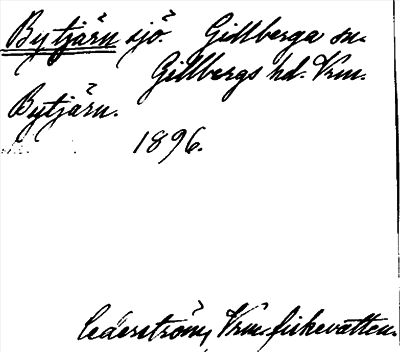 Bytjärn sjö. Gillberga sn.
Gillbergs hd. Vrm.
Bytjärn.
1896.
Cederström, Vrm. fiskevatten.